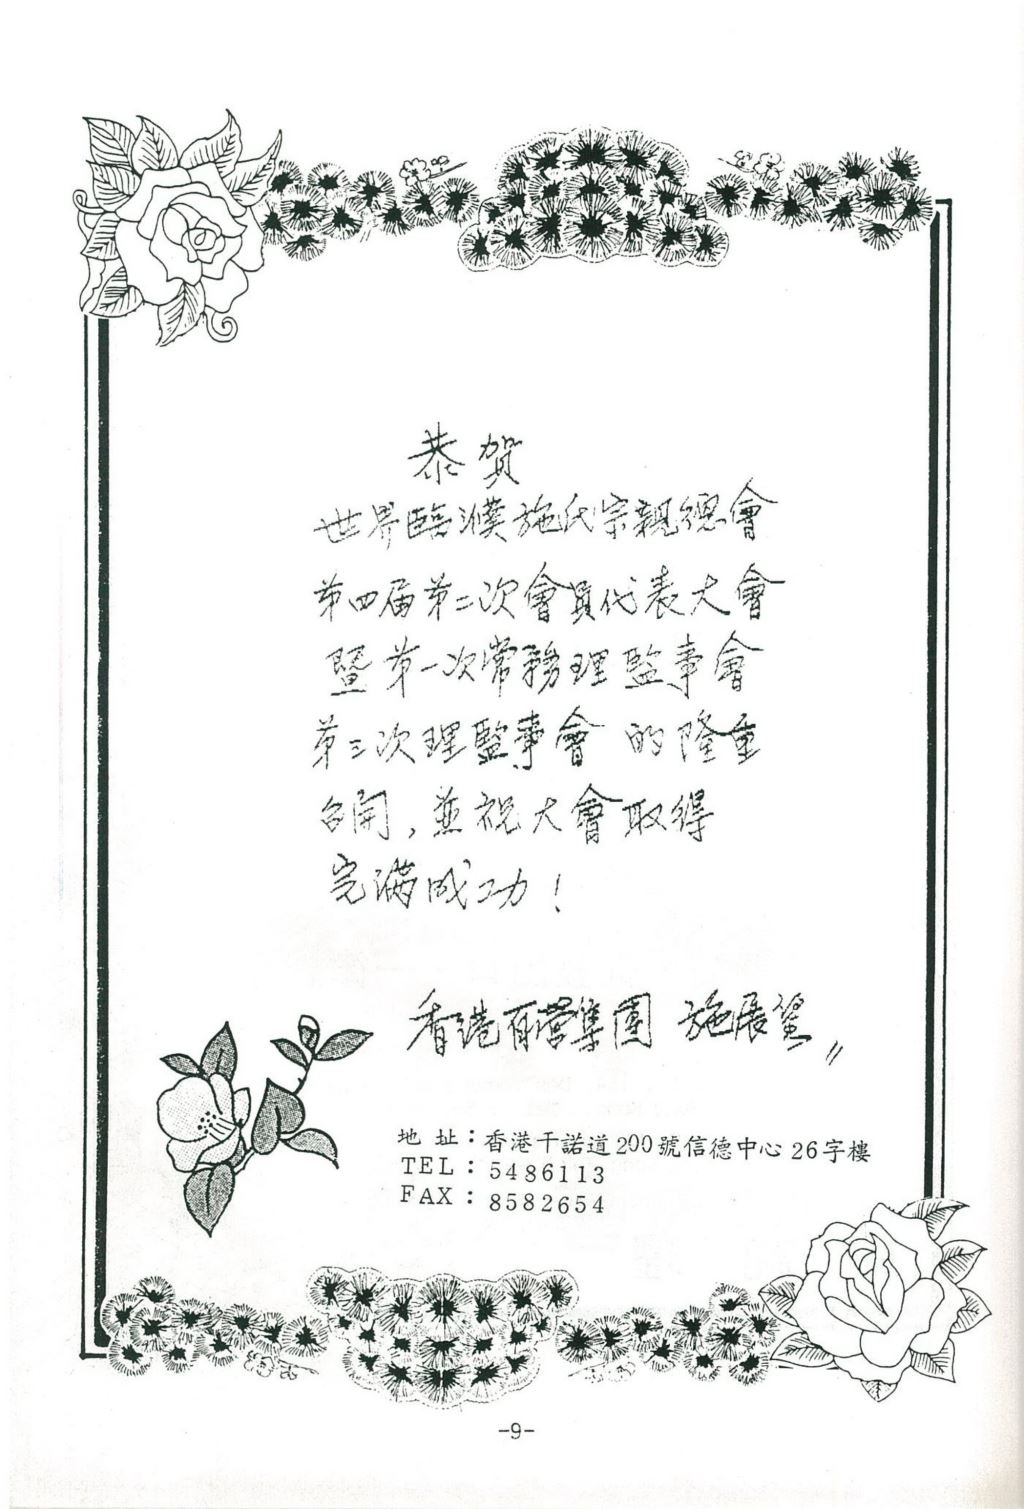 恭贺
世界臨濮施氏宗親總會
第四届第二次會員代表大會
暨第一次常務理監事會
第三次理監事會的隆重
召開，並祝大會取得
完满成功！
香港百营集團 施展望
地址：香港干諾道200號信德中心26字樓
TEL：5486113
FAX：8582654
-9-